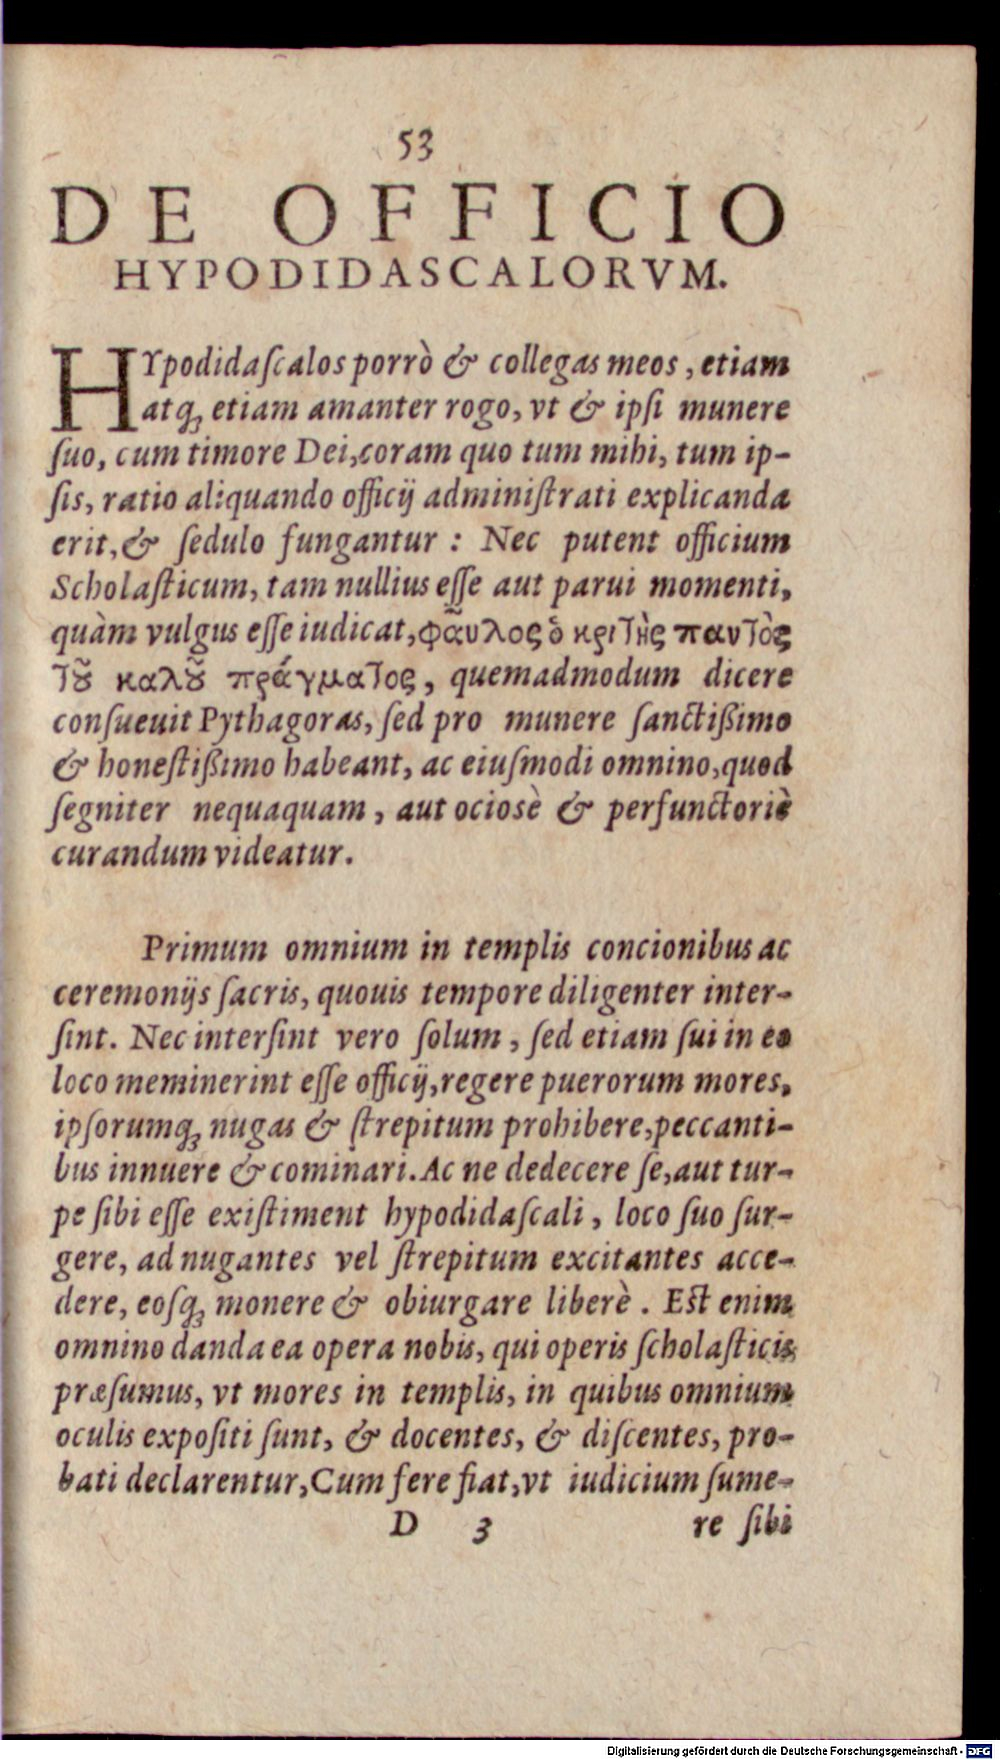 53
DE OFFICIO
HYPODIDASCALORVM.
HYpodidaſcalos porrò & collegas meos, etiam
atq; etiam amanter rogo, vt & ipſi munere
ſuo, cum timore Dei, coram quo tum mihi, tum ip-
ſis, ratio aliquando officij adminiſtrati explicanda
erit, & ſedulo fungantur : Nec putent officium
Scholaſticum, tam nullius eſſe aut parui momenti,
quàm vulgus eſſe iudicat, φαῦλος ὁ κριτὴς παντὸς
τȣ͂ καλȣ͂ πράγματος, quemadmodum dicere
conſueuit Pythagoras, ſed pro munere ſanctißimo
& honeſtißimo habeant, ac eiuſmodi omnino, quod
ſegniter nequaquam, aut ociosè & perfunctoriè
curandum videatur.
Primum omnium in templis concionibus ac
ceremonijs ſacris, quouis tempore diligenter inter-
ſint. Nec interſint vero ſolum, ſed etiam ſui in eo
loco meminerint eſſe officij, regere puerorum mores,
ipſorumq; nugas & ſtrepitum prohibere, peccanti-
bus innuere & cominari. Ac ne dedecere ſe, aut tur-
pe ſibi eſſe exiſtiment hypodidaſcali, loco ſuo ſur-
gere, ad nugantes vel ſtrepitum excitantes acce-
dere, eoſq; monere & obiurgare liberè. Eſt enim
omnino danda ea opera nobis, qui operis ſcholaſticis
præſumus, vt mores in templis, in quibus omnium
oculis expoſiti ſunt, & docentes, & diſcentes, pro-
bati declarentur, Cum fere fiat, vt iudicium ſume-
D 3 re ſibi
Digitalisierung gefördert durch die Deutsche Forschungsgemeinschaft - DFG